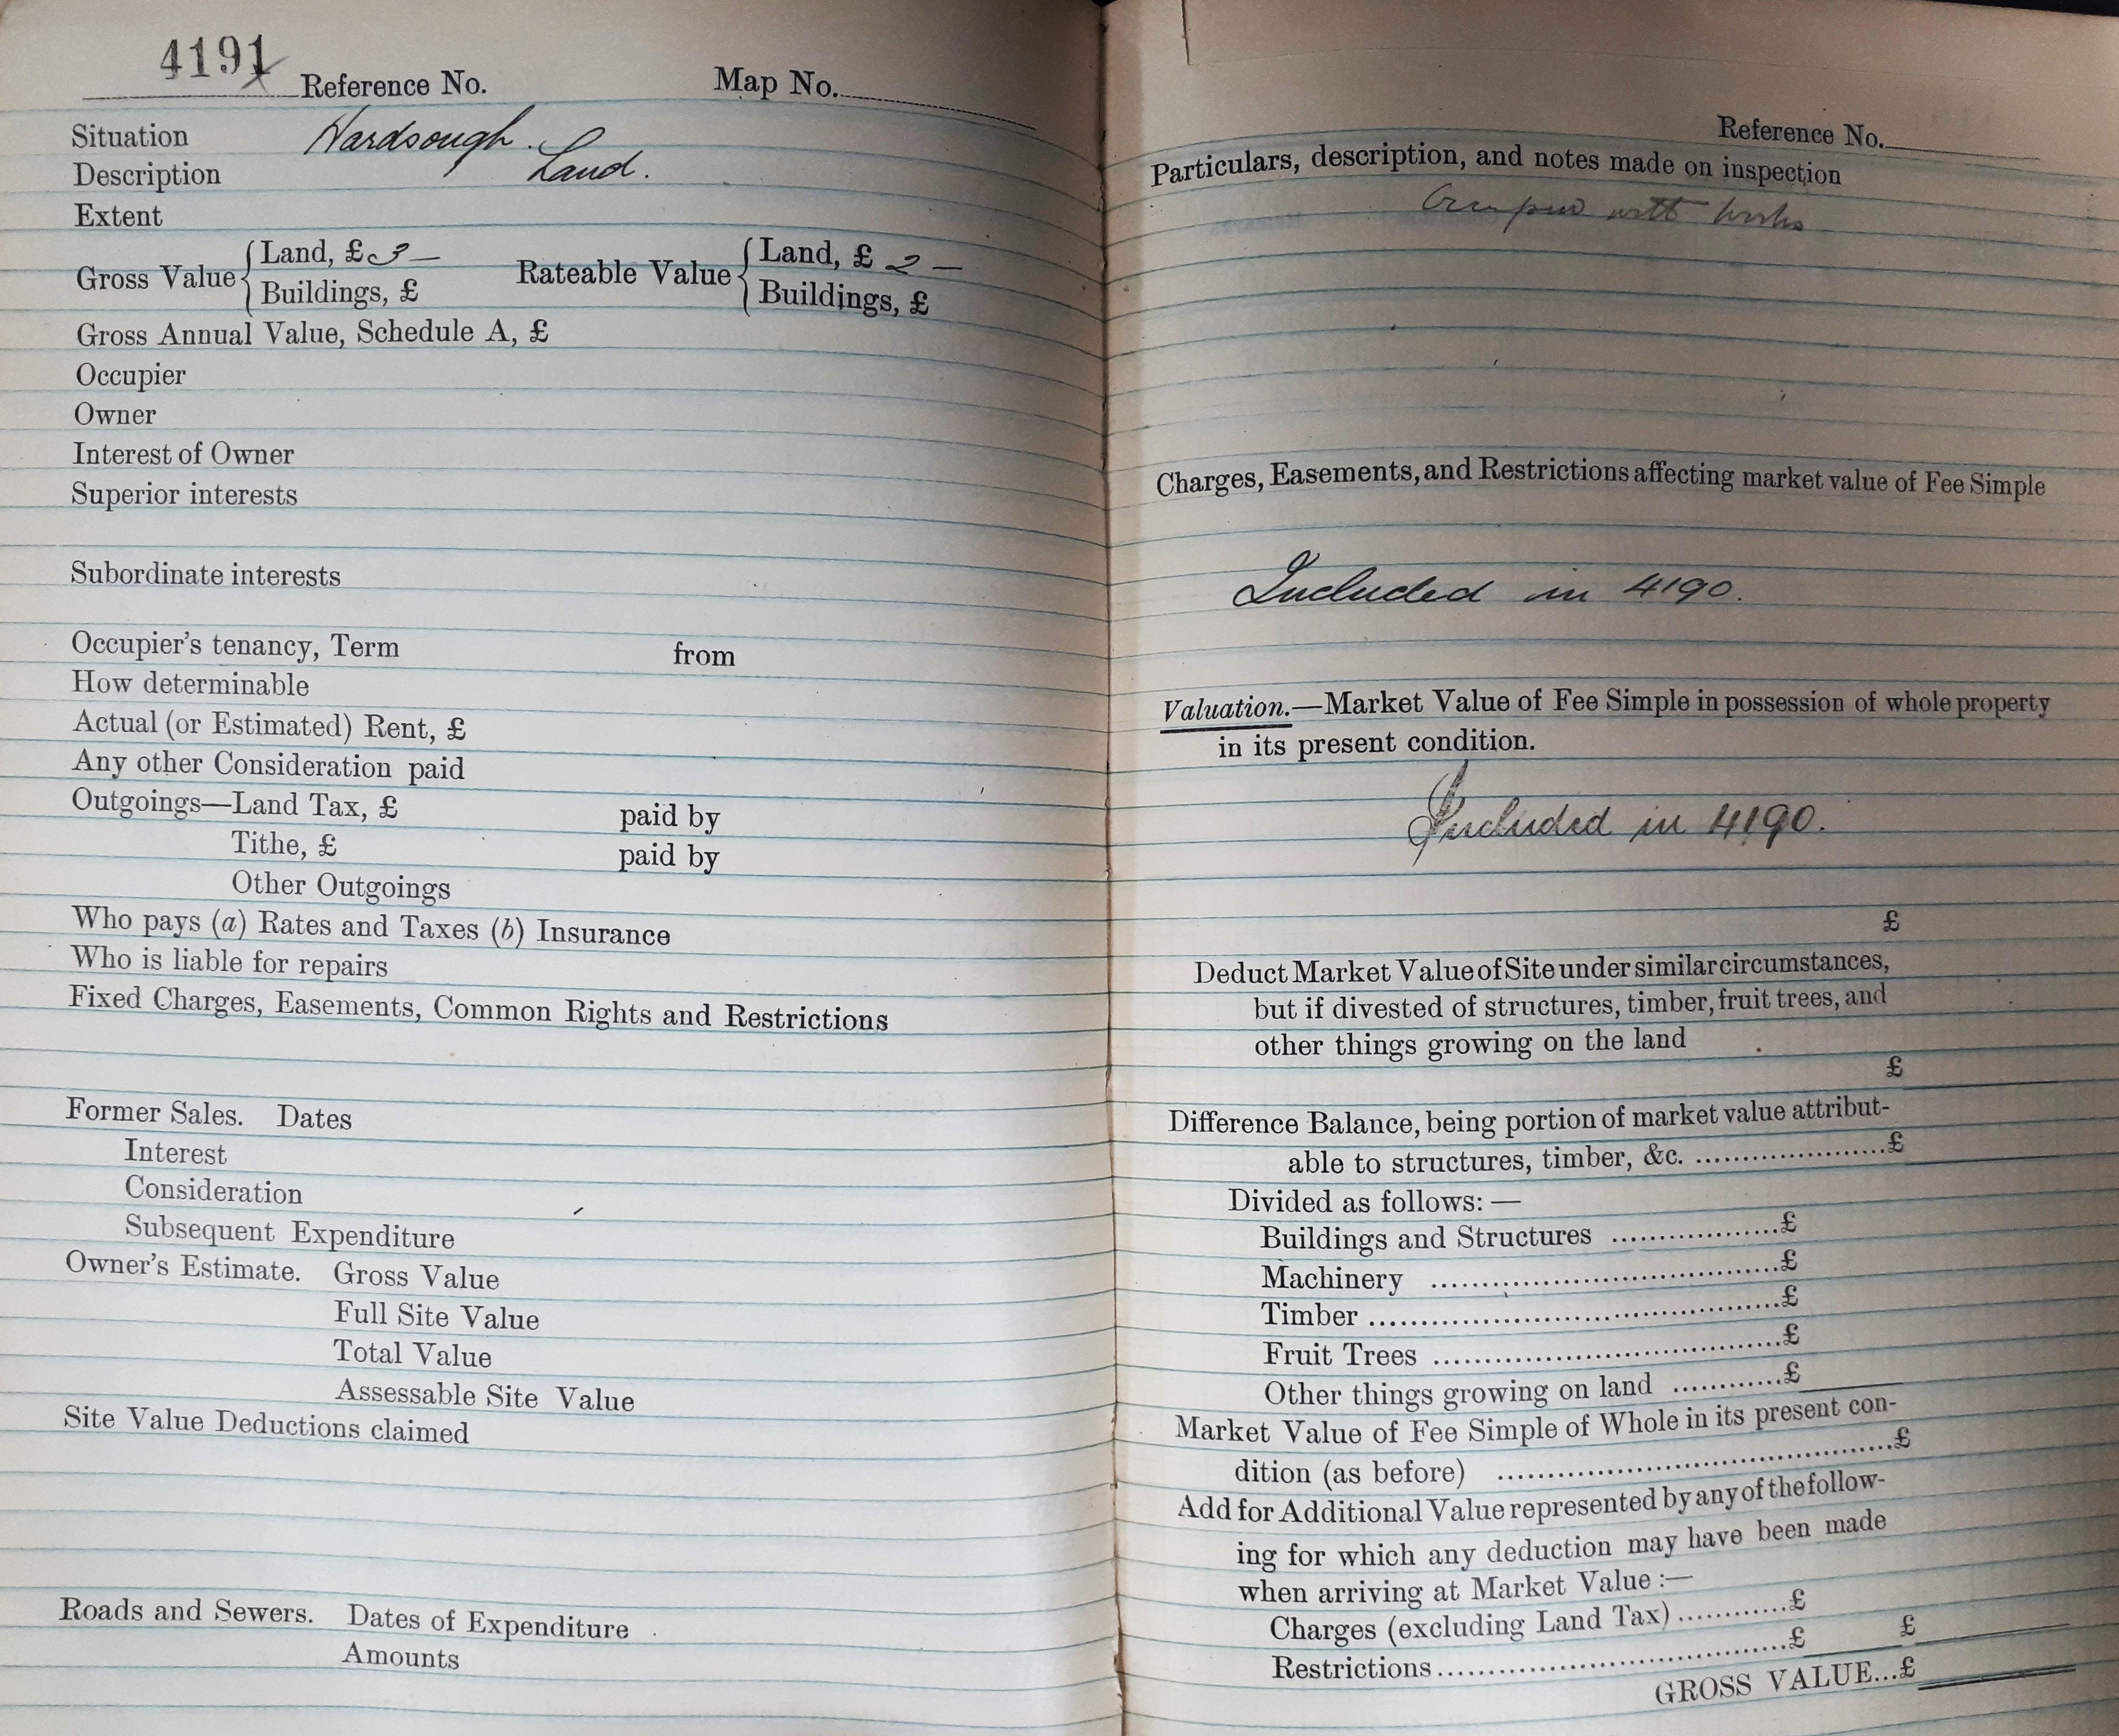 4191 Reference No. Map No.
Situation Hardsough.
Description Land.
Extent
Gross Value { Land, £ 3 — Rateable Value { Land, £ 2 —
Buildings, £ Buildings, £
Gross Annual Value, Schedule A, £
Occupier
Owner
Interest of Owner
Superior interests
Subordinate interests
Occupier's tenancy, Term from
How determinable
Actual (or Estimated) Rent, £
Any other Consideration paid
Outgoings—Land Tax, £ paid by
Tithe, £ paid by
Other Outgoings
Who pays (a) Rates and Taxes (b) Insurance
Who is liable for repairs
Fixed Charges, Easements, Common Rights and Restrictions
Former Sales. Dates
Interest
Consideration
Subsequent Expenditure
Owner's Estimate. Gross Value
Full Site Value
Total Value
Assessable Site Value
Site Value Deductions claimed
Roads and Sewers. Dates of Expenditure
Amounts
Reference No.
Particulars, description, and notes made on inspection
with works
Charges, Easements, and Restrictions affecting market value of Fee Simple
Included in 4190.
Valuation.—Market Value of Fee Simple in possession of whole property
in its present condition.
Included in 4190.
£
Deduct Market Value of Site under similar circumstances,
but if divested of structures, timber, fruit trees, and
other things growing on the land
£
Difference Balance, being portion of market value attribut-
able to structures, timber, &c. ......................£
Divided as follows: —
Buildings and Structures ..................£
Machinery ......................................£
Timber ............................................£
Fruit Trees ......................................£
Other things growing on land ............£
Market Value of Fee Simple of Whole in its present con-
dition (as before) ..........................................£
Add for Additional Value represented by any of the follow-
ing for which any deduction may have been made
when arriving at Market Value :—
Charges (excluding Land Tax) ............£
Restrictions ......................................£ £
GROSS VALUE...£